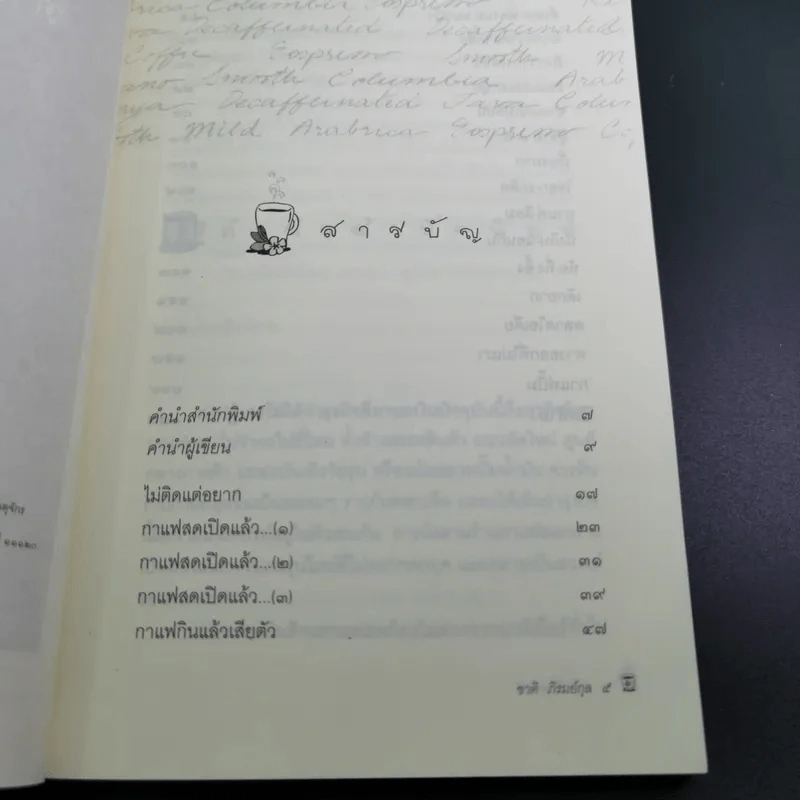 Columbia Espresso
Decaffeinated Decaffeinated
Coffee Espresso Smooth M
Smooth Columbia Arab
Decaffeinated Java Colum
th Mild Arabrica Espresso Co
สารบัญ
คำนำสำนักพิมพ์ ๗
คำนำผู้เขียน ๙
ไม่ติดแต่อยาก ๑๗
กาแฟสดเปิดแล้ว...(๑) ๒๓
กาแฟสดเปิดแล้ว...(๒) ๓๑
กาแฟสดเปิดแล้ว...(๓) ๓๙
กาแฟกินแล้วเสียตัว ๔๗
ชวติ ภิรมย์กุล ๕